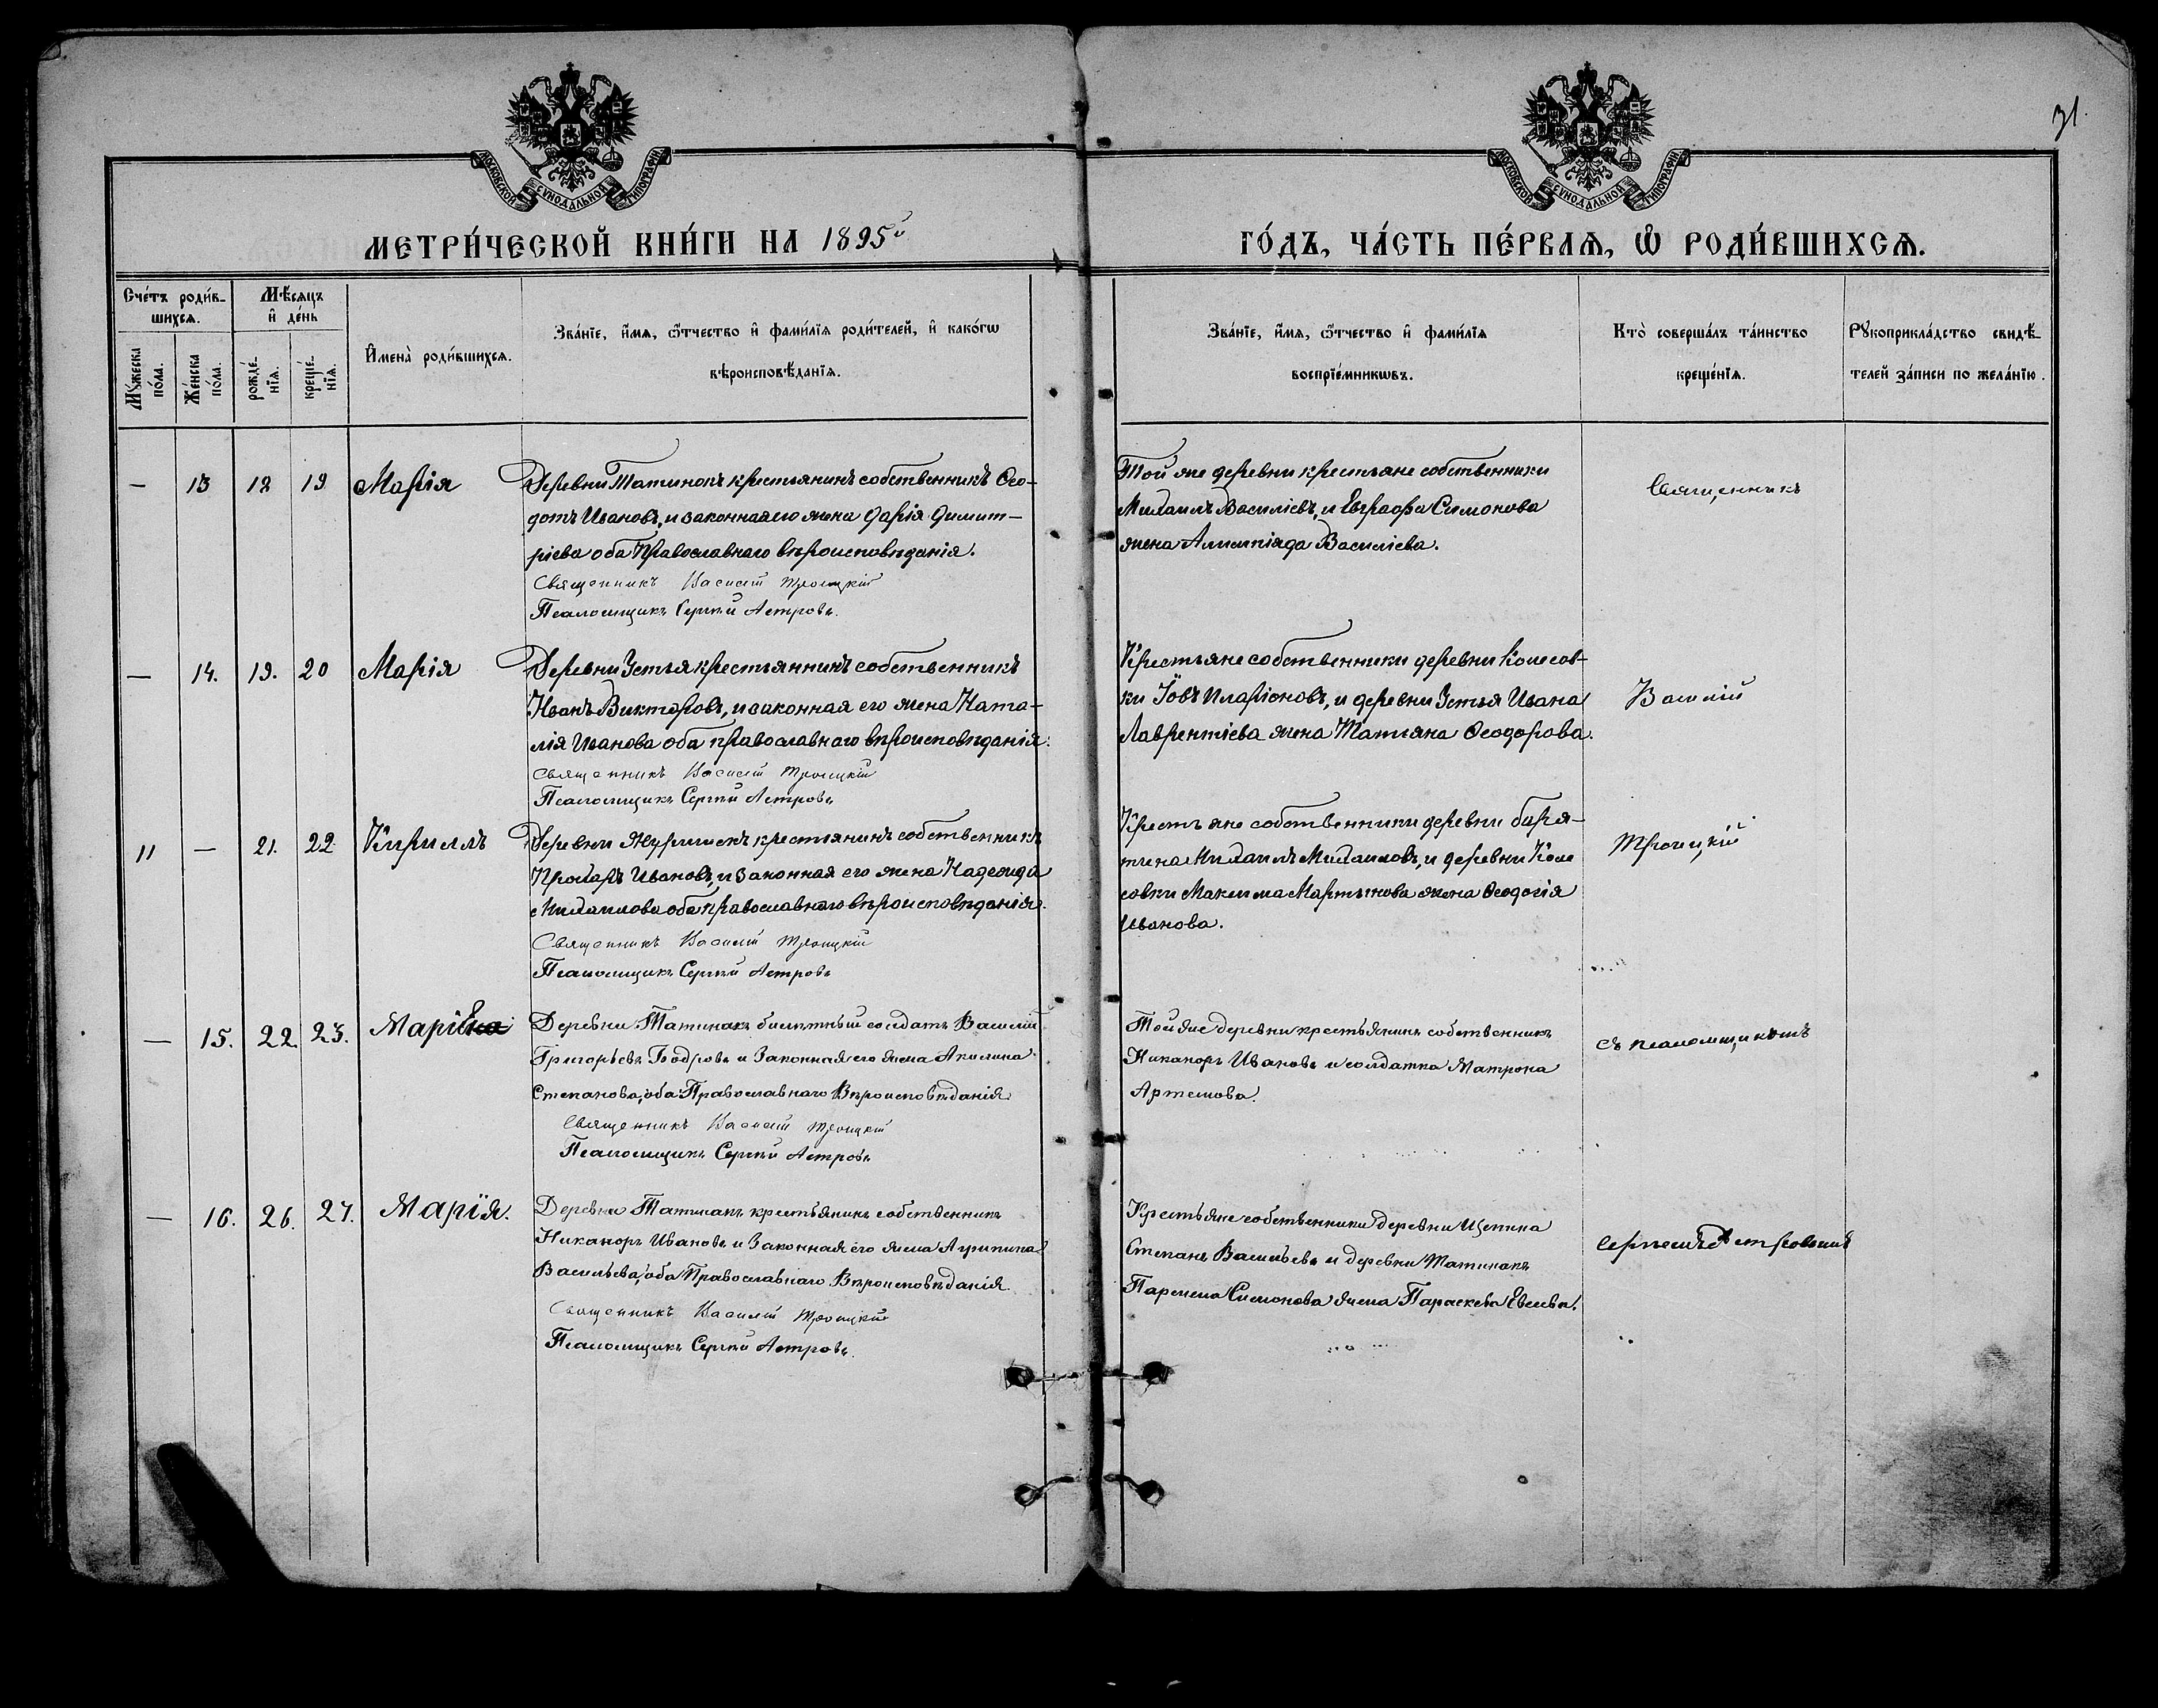 31.
МОСКОВСКОЙ СѴНОДАЛЬНОЙ ТИПОГРАФІИ
МОСКОВСКОЙ СѴНОДАЛЬНОЙ ТИПОГРАФІИ
МЕТРИ́ЧЕСКОЙ КНИ́ГИ НА 1895й
ГО́ДЪ, ЧА́СТЬ ПЕ́РВАѦ, Ѽ РОДИ́ВШИХСѦ.
Сче́тъ роди́в-
шихсѧ.
Мѣ́сѧцъ
и҆ де́нь
Мꙋ́жеска
по́ла.
Же́нска
по́ла.
рожде́-
нїѧ.
креще́-
нїѧ.
И҆мена̀ роди́вшихсѧ.
Зва́нїе, и҆́мѧ, ѻ҆́тчество и҆ фами́лїѧ роди́телей, и҆ како́гѡ
вѣроисповѣ́данїѧ.
Зва́нїе, и҆́мѧ, ѻ҆́тчество и҆ фами́лїѧ
воспрїе́мникѡвъ.
Кто̀ соверша́лъ та́инство
креще́нїѧ.
Рꙋкоприкла́дство свидѣ́-
телей за́писи по жела́нїю.
— 13 18 19 Марія
Деревни Татинокъ крестьянинъ собственникъ Ѳео-
дотъ Ивановъ, и законная его жена Дарія Димит-
ріева оба Православнаго вѣроисповѣданія.
Священникъ Василій Троицкій
Псаломщикъ Сергѣй Астровъ.
Той же деревни крестьяне собственники
Михаилъ Василіевъ, и Евграфа Симонова
жена Алимпіада Василіева.
Священникъ
— 14. 19. 20 Марія
Деревни Устья крестьянинъ собственникъ
Иванъ Викторовъ, и законная его жена Ната-
лія Иванова оба православнаго вѣроисповѣданія.
Священникъ Василій Троицкій
Псаломщикъ Сергѣй Астровъ
Крестьяне собственники деревни Колесов-
ки Іовъ Иларіоновъ, и деревни Устья Ивана
Лаврентіева жена Татіана Ѳеодорова.
Василій
11 — 21. 22 Кириллъ
Деревни крестьянинъ собственникъ
Ивановъ, и законная его жена Надежда
Михаилова оба православнаго вѣроисповѣданія.
Священникъ Василій Троицкій
Псаломщикъ Сергѣй Астровъ
Крестьяне собственники деревни Биря-
тина Михаилъ Михаиловъ, и деревни Коле
совки Максима Мартынова жена Ѳеодосія
Иванова.
Троицкій
— 15. 22. 23. Марі
Деревни Татинокъ билетный солдатъ Василій
Григорьевъ Бодровъ и Законная его жена Акилина
Степанова, оба Православнаго Вѣроисповѣданія.
Священникъ Василій Троицкій
Псаломщикъ Сергѣй Астровъ
Той же деревни крестьянинъ собственникъ
Никаноръ Ивановъ и солдатка Матрона
Артемова.
съ псаломщикомъ
— 16. 26. 27. Марїя.
Деревни Татинокъ крестьянинъ собственникъ
Никаноръ Ивановъ и Законная его жена Агрипина
Васильева, оба Православнаго Вѣроисповѣданія
Священникъ Василій Троицкій
Псаломщикъ Сергѣй Астровъ.
Крестьяне собственники деревни Щепина
Степанъ Васильевъ и деревни Татинокъ
Пармена Симонова жена Параскева Евсева.
Сергѣемъ Астровымъ